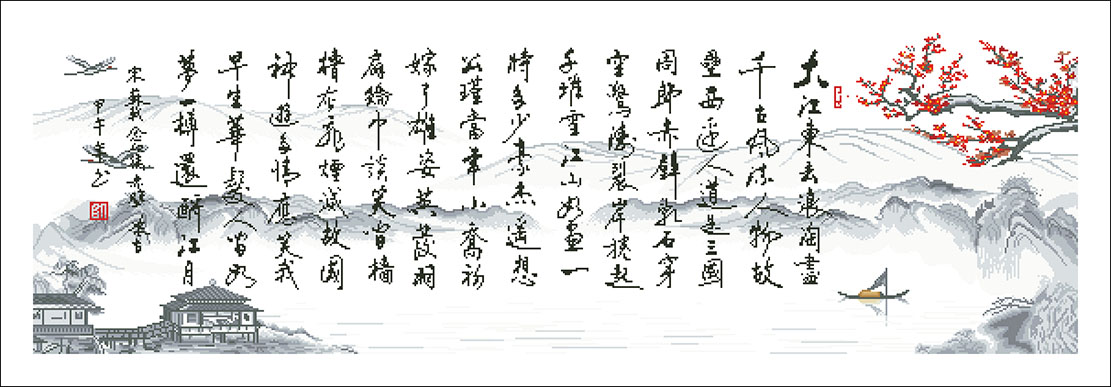 大江東去浪淘盡
千古風流人物故
壘西邊人道是三國
周郎赤壁亂石穿
空驚濤裂岸捲起
千堆雪江山如畫一
時多少豪杰遙想
公瑾當年小喬初
嫁了雄姿英發羽
扇綸巾談笑間檣
櫓灰飛煙滅故國
神遊多情應笑我
早生華髮人間如
夢一樽還酹江月
宋蘇軾念奴嬌赤壁懷古
甲午年书